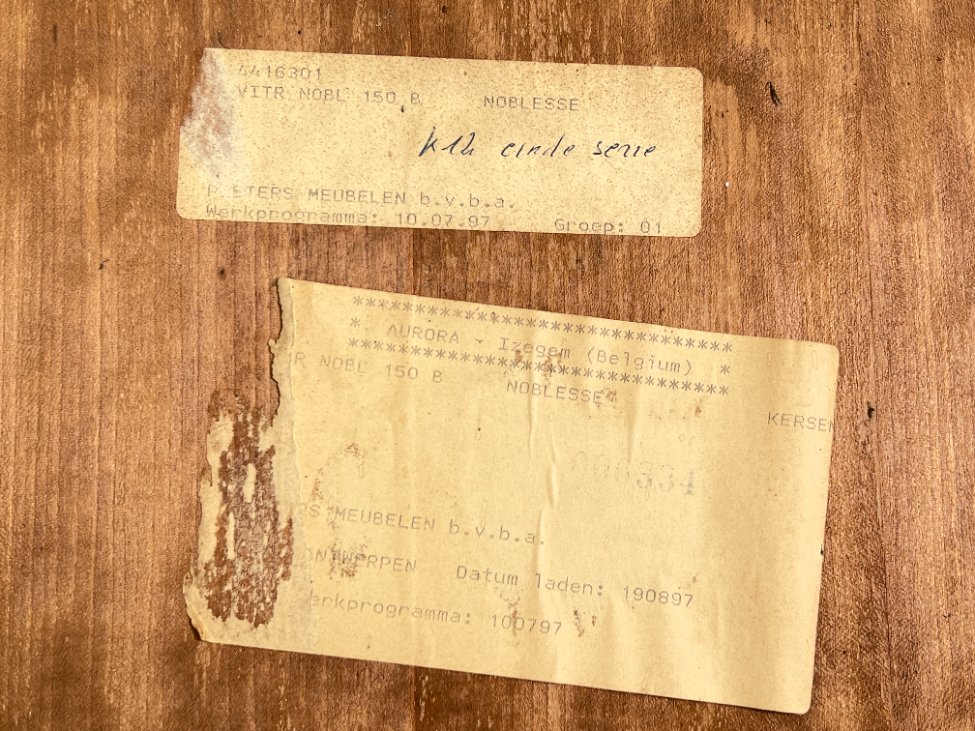 4416301
VITR NOBL 150 B NOBLESSE
einde serie
P ETERS MEUBELEN b.v.b.a.
Werkprogramma: 10.07.97 Groep: 01
******************************
* AURORA - Izegem (Belgium) *
******************************
R NOBL 150 B NOBLESSE
KERSEN
RS MEUBELEN b.v.b.a.
ONTWERPEN Datum laden: 190897
erkprogramma: 100797